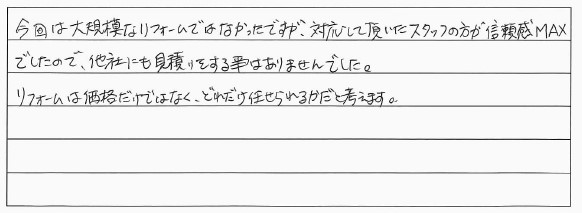 今回は大規模なリフォームではなかったですが、対応して頂いたスタッフの方が信頼感MAX
でしたので、他社にも見積りをする事はありませんでした。
リフォームは価格だけではなく、どれだけ任せられるかだと考えます。